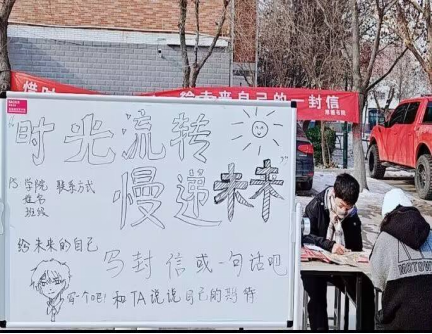 给未来自己的一封信
"时光流转
慢递未来"
PS 学院 联系方式
姓名
班级
给未来的自己
写封信或一句话吧
写个吧! 和TA说说自己的期待